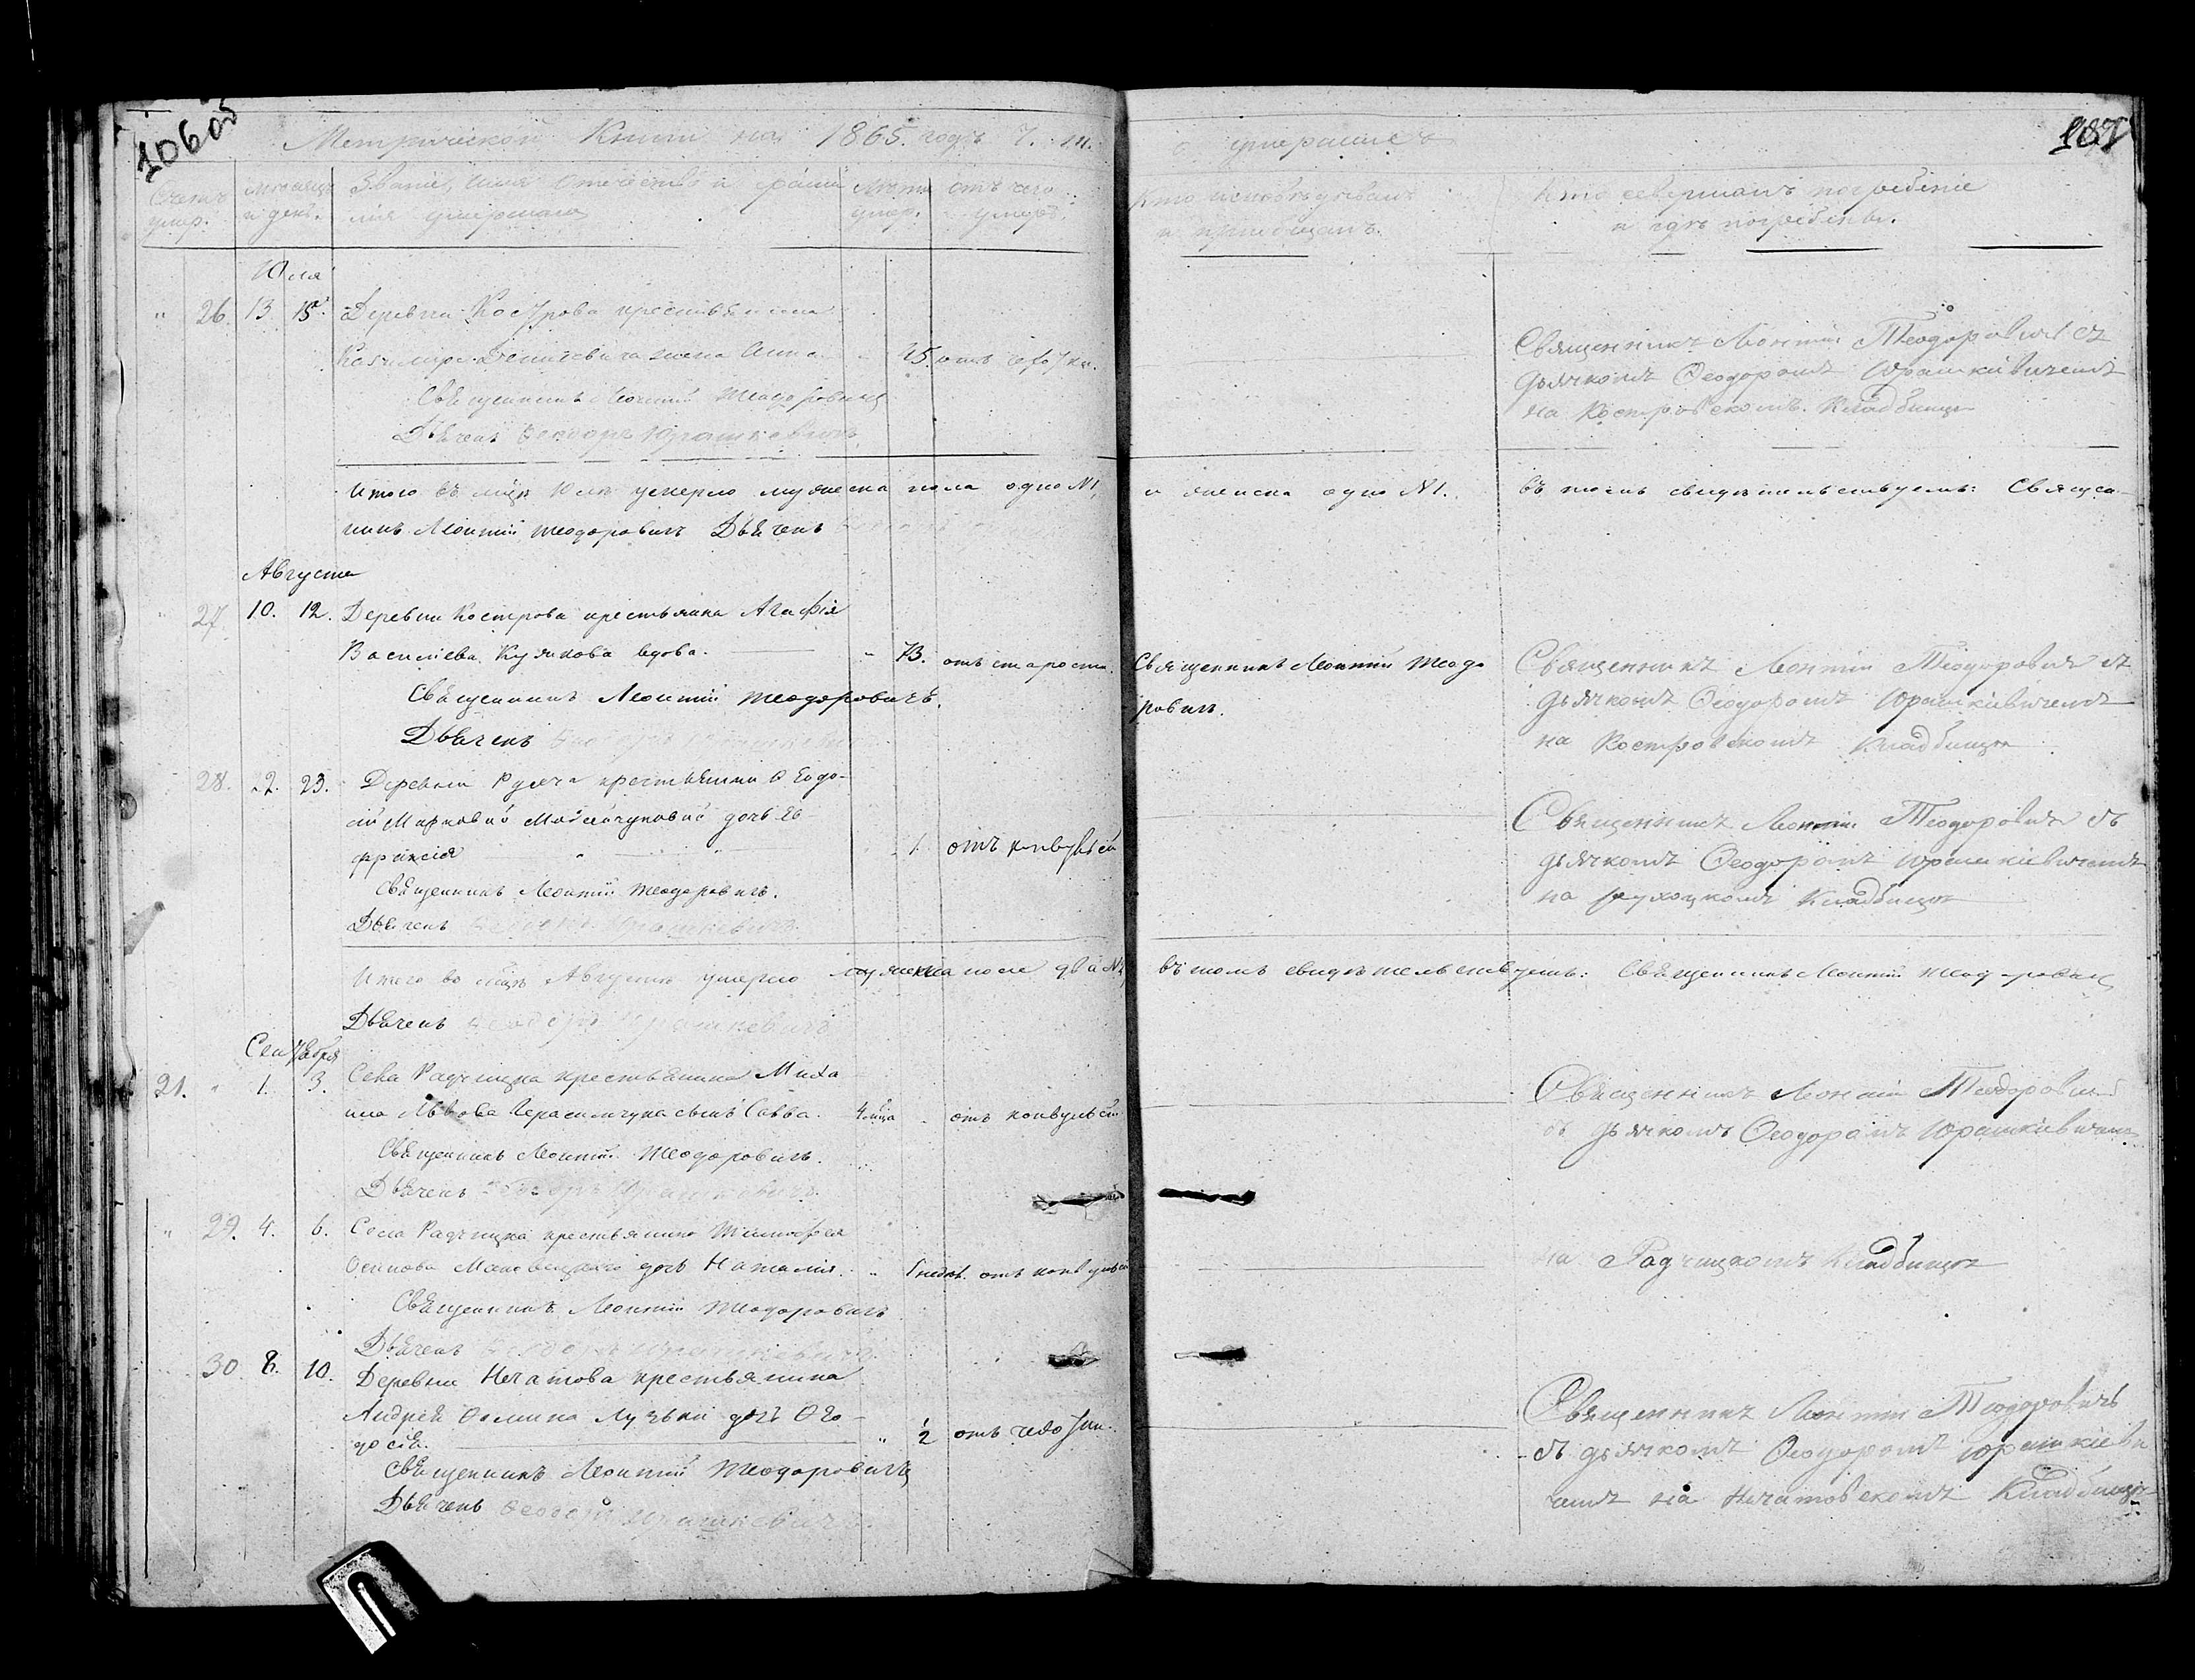 106об
Метрической Книги на 1865. годъ Ч. III.
о умершихъ
187
Счетъ умер.
Мѣсяцъ и день.
Званіе, имя отечество и фамилія умершаго
Лѣта умер.
отъ чего умеръ.
Кто исповѣдывалъ и пріобщалъ.
Кто совершалъ погребеніе и гдѣ погребены.
Юля
26. 13 15. Деревни Кострова крестьянина
жена Анна 45. отъ
Священникъ Леонтій Теодоровичъ
Дьячекъ Ѳеодоръ Юрашкевичъ
Священникъ Леонтій Теодоровичъ съ
дьячкомъ Ѳеодоромъ Юрашкевичемъ
на Костровскомъ Кладбищѣ
Итого въ мцѣ Юлѣ умерло мужеска пола одно №1, и женска одно №1. въ томъ свидѣтельствуемъ: Священ-
никъ Леонтій Теодоровичъ Дьячекъ
Августа
27. 10. 12. Деревни Кострова крестьянка Агафія
Василіева вдова. 73. отъ старости. Священникъ Леонтій Теодо
ровичъ.
Священникъ Леонтій Теодоровичъ.
Дьячекъ
Священникъ Леонтій Теодоровичъ съ
дьячкомъ Ѳеодоромъ Юрашкевичемъ
на Костровскомъ Кладбищѣ
28. 22. 23. Деревни крестьянина Ѳеодо-
дочь Ев
фроксія 1 отъ конвульсій
Священникъ Леонтій Теодоровичъ.
Дьячекъ Юрашкевичъ
Священникъ Леонтій Теодоровичъ съ
дьячкомъ Ѳеодоромъ Юрашкевичемъ
на Кладбищѣ
Итого во мцѣ Августѣ умерло пола два №2 въ томъ свидѣтельствуемъ: Священникъ Леонтій Теодоровичъ
Дьячекъ Ѳеодоръ Юрашкевичъ
Сентября
21. 1. 3. Села Радчицка крестьянина Миха
ила Львова Герасимчука сынъ Савва. 4 мца отъ конвульсій
Священникъ Леонтій Теодоровичъ.
Дьячекъ Ѳеодоръ Юрашкевичъ
Священникъ Леонтій Теодоровичъ
съ дьячкомъ Ѳеодоромъ Юрашкевичемъ
29. 4. 6. Села Радчицка крестьянина Тимофея
Осипова дочь Наталія. отъ конвульсій
Священникъ Леонтій Теодоровичъ
Дьячекъ Ѳеодоръ Юрашкевичъ
на Радчицкомъ Кладбищѣ
30. 8. 10. Деревни Нечатова крестьянина
Андрея Ѳомина дочь Ѳео-
досія. 1/2 отъ
Священникъ Леонтій Теодоровичъ
Дьячекъ Ѳеодоръ Юрашкевичъ
Священникъ Леонтій Теодоровичъ
съ дьячкомъ Ѳеодоромъ Юрашкеви
чемъ на Нечатовскомъ Кладбищѣ